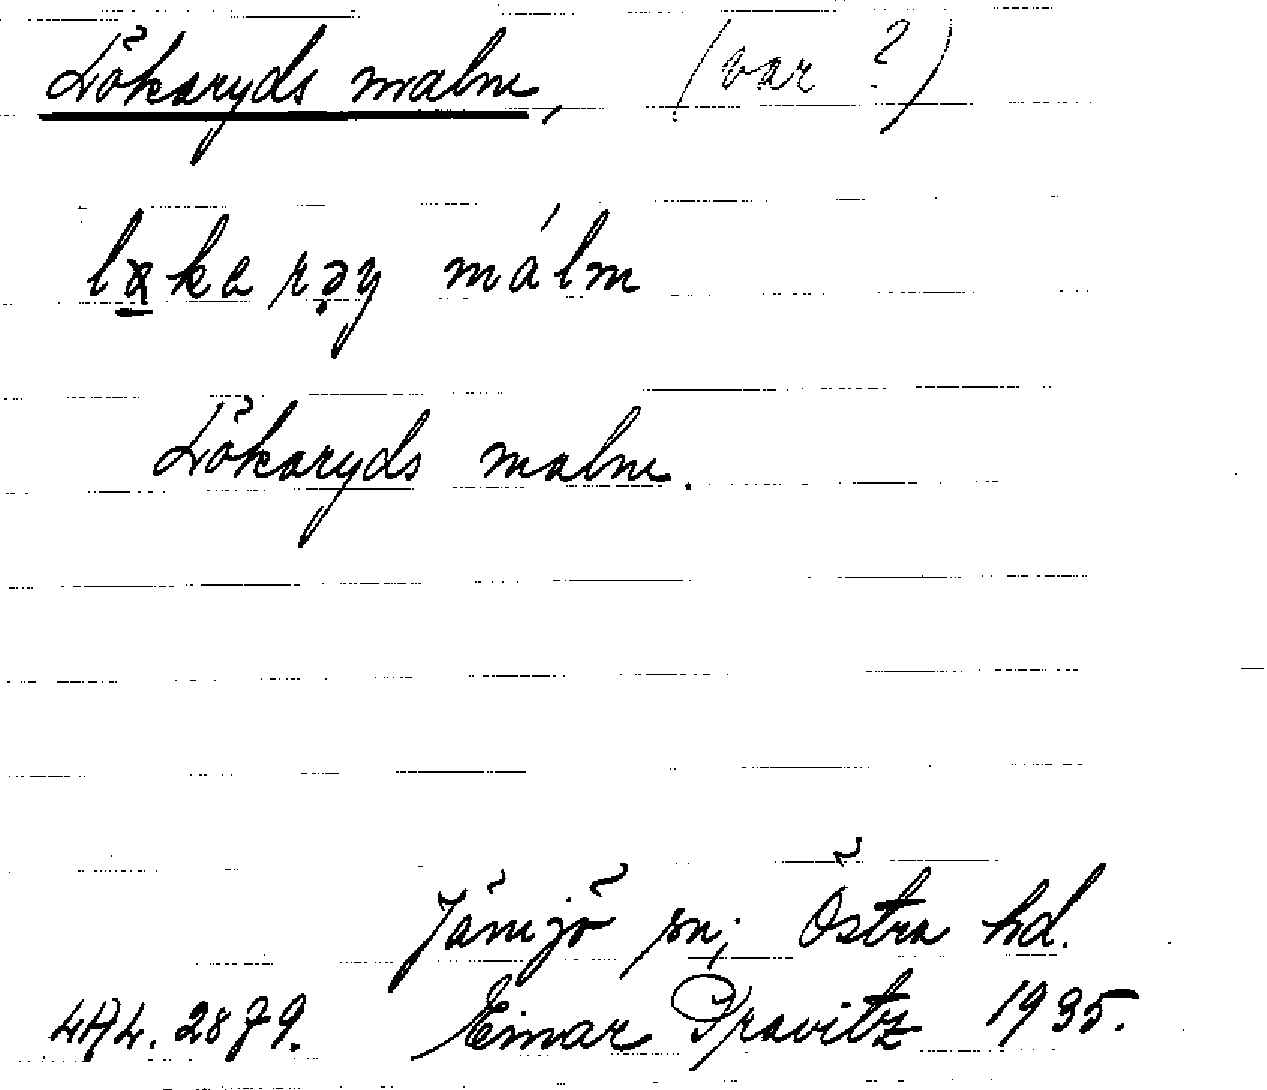 Lökaryds malm, (var ?)
løkarəy málm
Lökaryds malm.
Jämjö sn; Östra hd.
LA4. 2879. Einar Gravitz 1935.